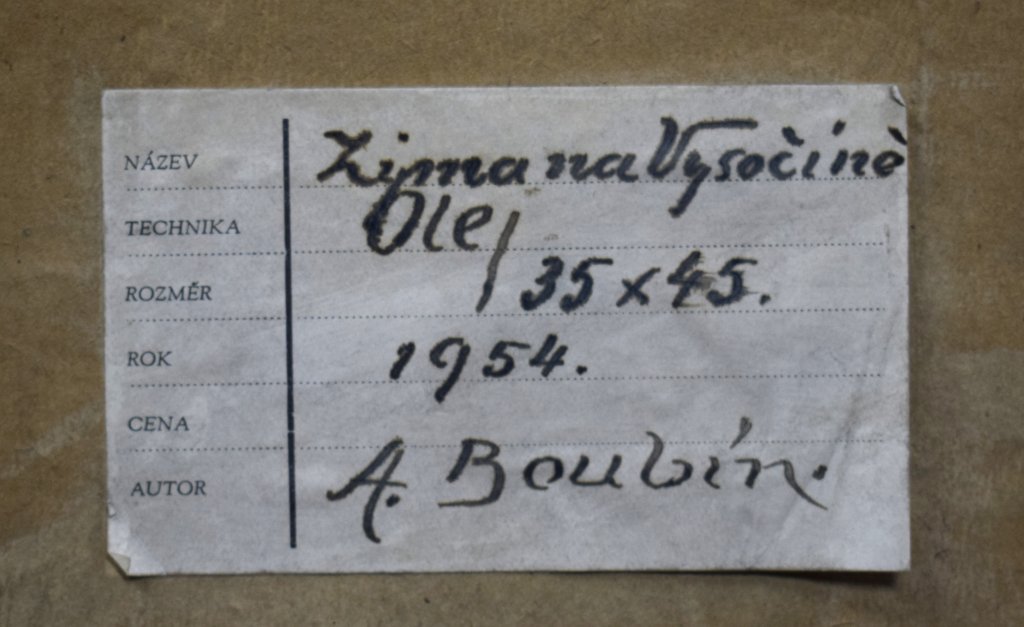 NÁZEV Zima na Vysočině
TECHNIKA Olej
ROZMĚR 35 x 45.
ROK 1954.
CENA
AUTOR A. Boubín.